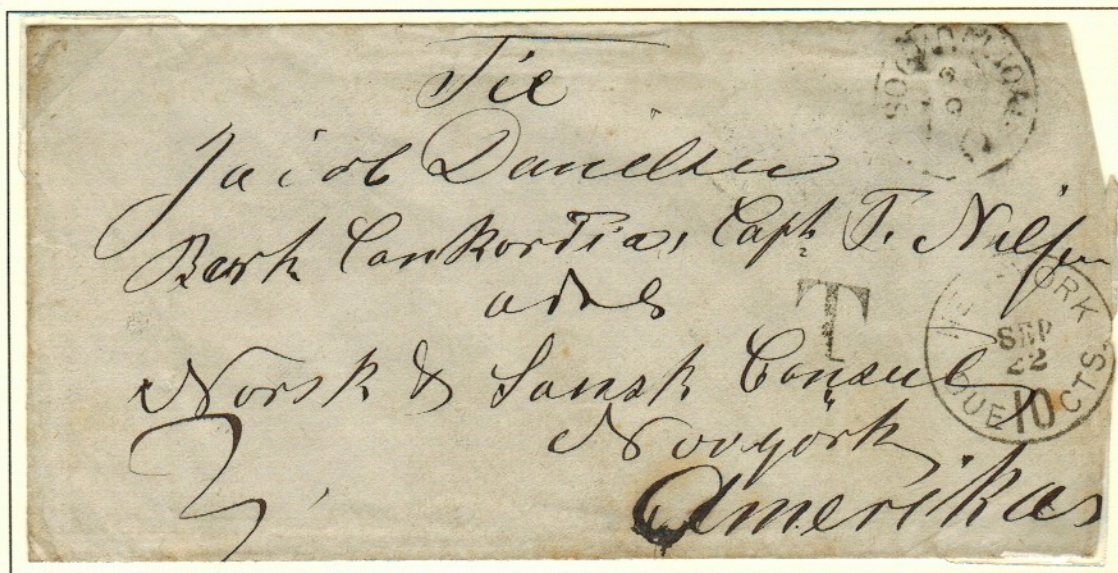 Til
Jacob Danielsen
Bark Conkordia, Capt. T. Nilsen
adrs
Norsk & Svensk Consul
Nevyörk
Amerika
T
NEW YORK
SEP
22
DUE 10 CTS.